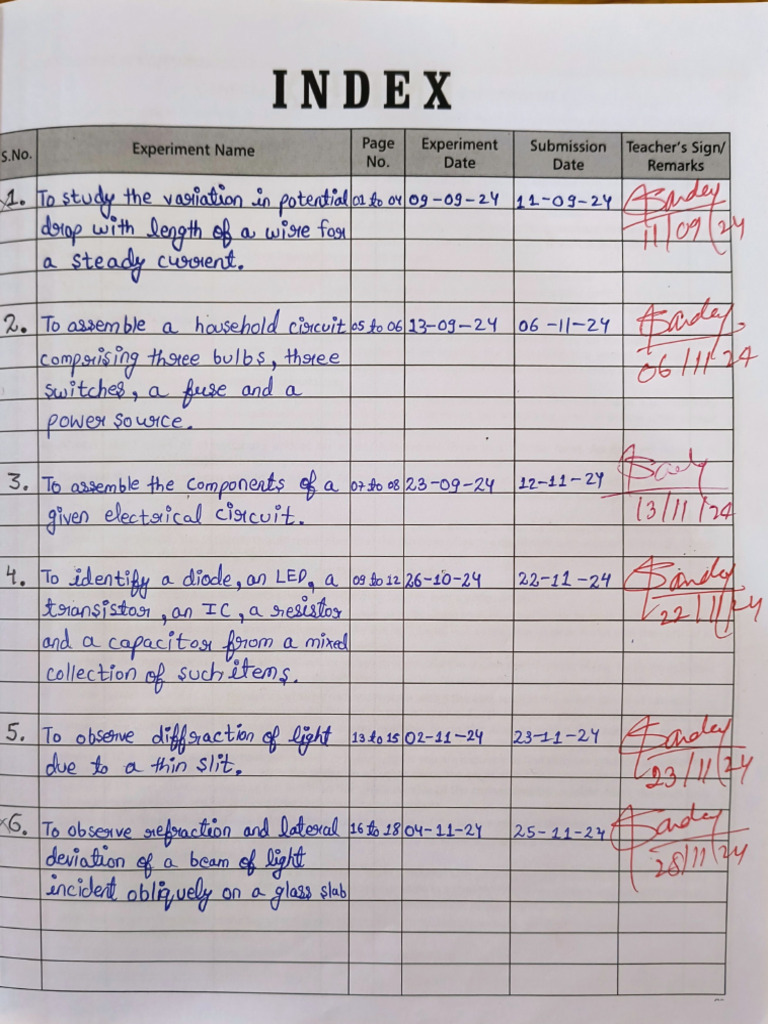 INDEX
S.No. Experiment Name Page No. Experiment Date Submission Date Teacher's Sign/ Remarks
1. To study the variation in potential 02 to 04 09-09-24 11-09-24
drop with length of a wire for 11/09/24
a steady current.
2. To assemble a household circuit 05 to 06 13-09-24 06-11-24
comprising three bulbs, three 06/11/24
switches, a fuse and a
power source.
3. To assemble the components of a 07 to 08 23-09-24 12-11-24
given electrical circuit. 13/11/24
4. To identify a diode, an LED, a 09 to 12 26-10-24 22-11-24
transistor, an IC, a resistor 22/11/24
and a capacitor from a mixed
collection of such items.
5. To observe diffraction of light 13 to 15 02-11-24 23-11-24
due to a thin slit. 23/11/24
6. To observe refraction and lateral 16 to 18 04-11-24 25-11-24
deviation of a beam of light 28/11/24
incident obliquely on a glass slab